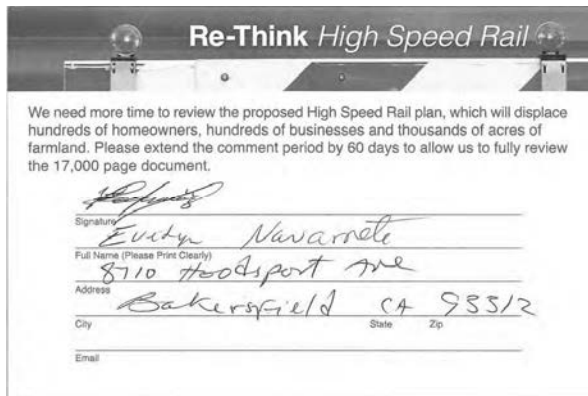 Re-Think High Speed Rail
We need more time to review the proposed High Speed Rail plan, which will displace
hundreds of homeowners, hundreds of businesses and thousands of acres of
farmland. Please extend the comment period by 60 days to allow us to fully review
the 17,000 page document.
Signature
Evelyn Navarrete
Full Name (Please Print Clearly)
8710 Hoodsport Ave
Address
Bakersfield CA 93312
City State Zip
Email